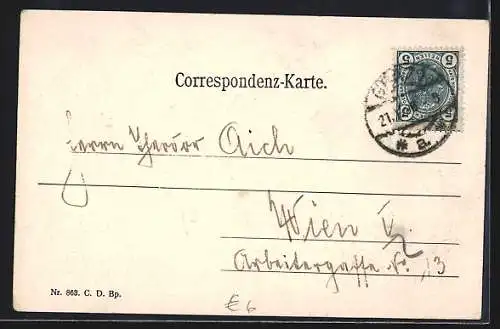 Correspondenz-Karte.
5 5
21.
* a.
Herrn Theodor Aich
Wien V/2
Arbeitergasse No. 13
Nr. 863. C. D. Bp.
€6